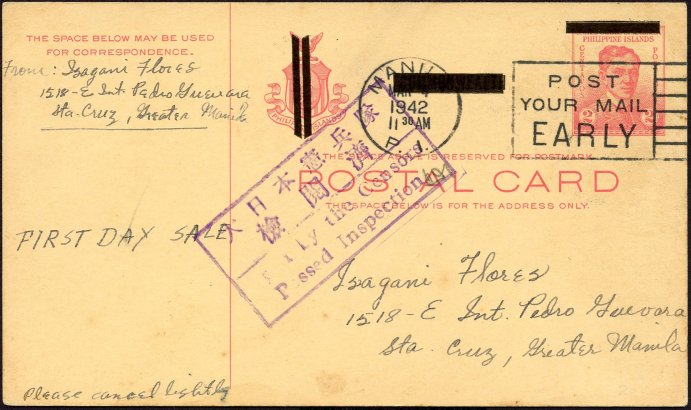 THE SPACE BELOW MAY BE USED
FOR CORRESPONDENCE.
From: Isagani Flores
1518-E Int. Pedro Guevara
Sta. Cruz, Greater Manila
PHILIPPINE ISLANDS
MANILA
1942
11 30 AM
P.
PHILIPPINE ISLANDS
POST
YOUR MAIL
EARLY
THE SPACE ABOVE IS RESERVED FOR POSTMARK.
POSTAL CARD
THE SPACE BELOW IS FOR THE ADDRESS ONLY.
大日本憲兵隊
檢閲濟
by the Censors.
Passed Inspection
FIRST DAY SALE
Isagani Flores
1518-E Int. Pedro Guevara
Sta. Cruz, Greater Manila
Please cancel lightly